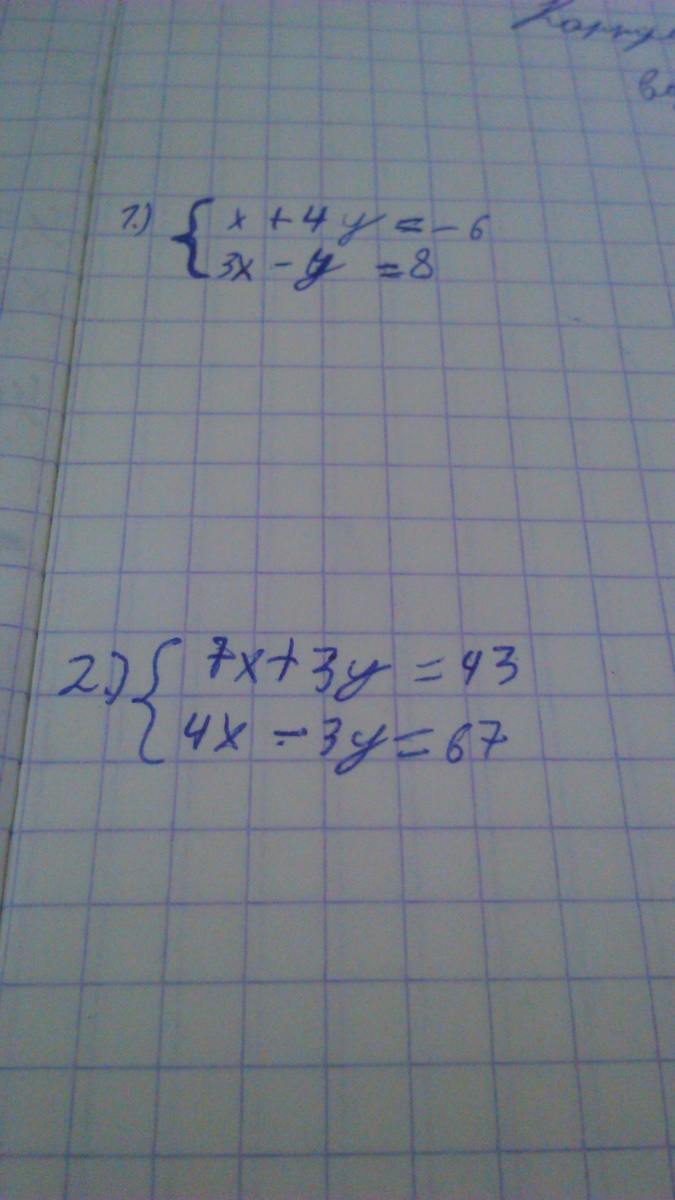 1.) { x + 4y = - 6
3x - y = 8
2.) { 7x + 3y = 43
4x - 3y = 67